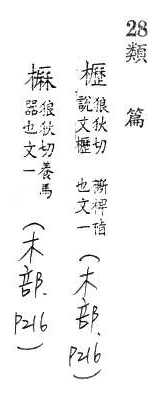 28類 篇
櫪 狼狄切 說文櫪 椑指也文一 (木部. P216)
狼狄切養馬器也文一 (木部. P216)